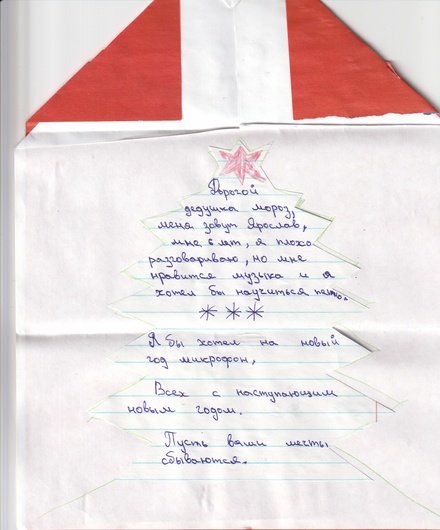 Дорогой
дедушка мороз,
меня зовут Ярослав,
мне 6 лят, я плохо
разговариваю, но мне
нравится музыка и я
хотел бы научиться петь.
***
Я бы хотел на новый
год микрофон,
Всех с наступающим
новым годом.
Пусть ваши мечты
сбываются.